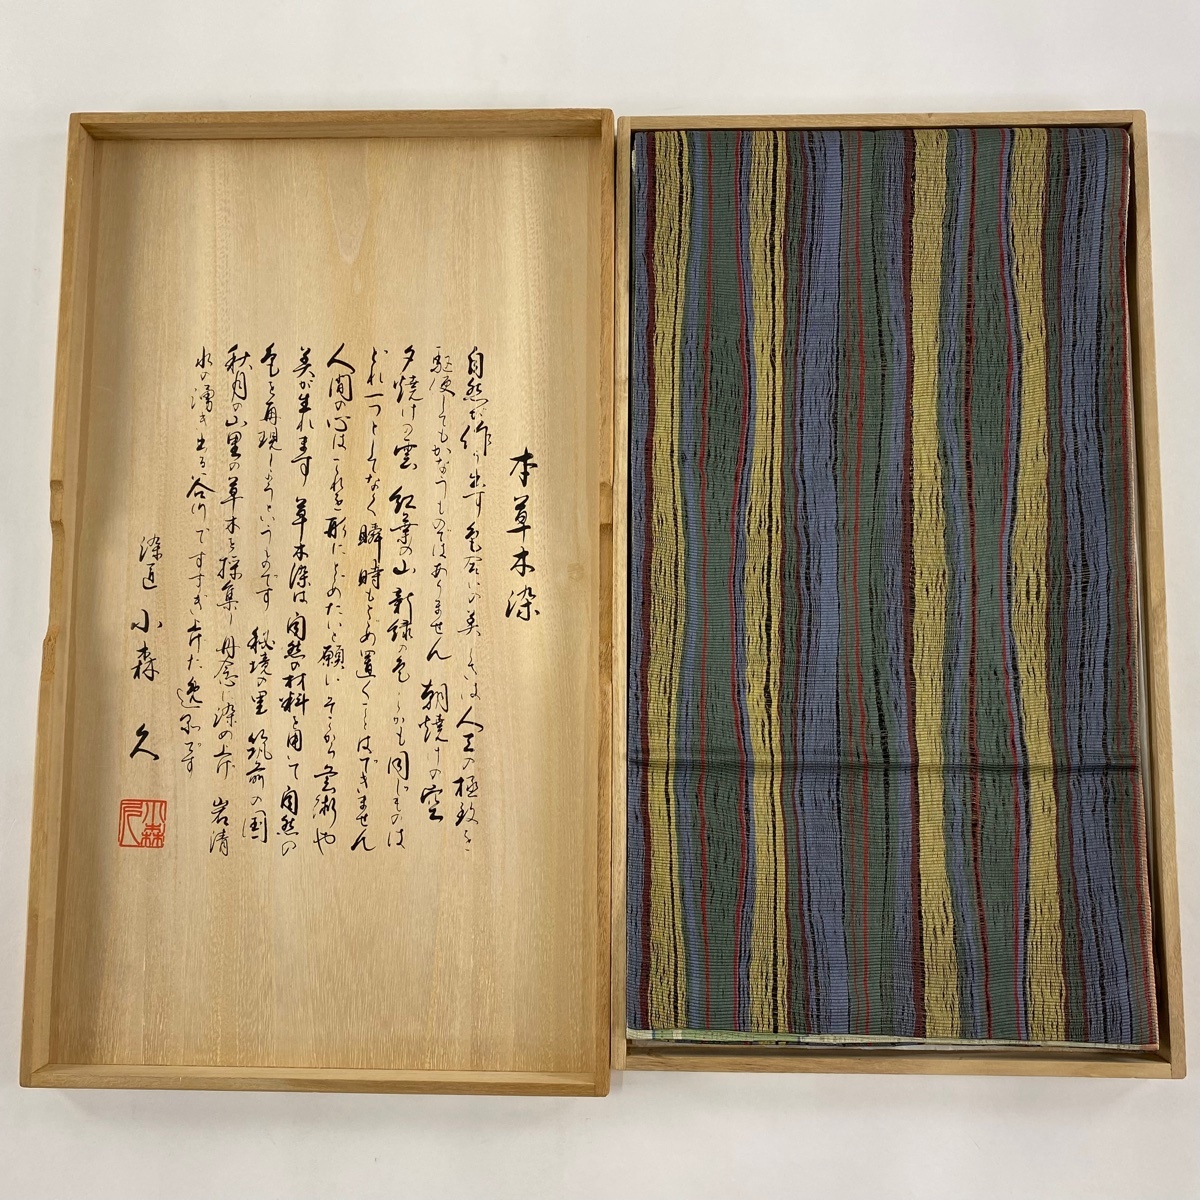 本草木染
自然が作り出す色合いの美しさは人工の極致を
駆使してもかなうものではありません 朝焼けの空
夕焼けの雲 紅葉の山 新緑の色しかも同じものは
どれ一つとしてなく瞬時もとどめ置くことはできません
人間の心はこれを形にとどめたいと願いそこから芸術や
美が生れます 草木染は自然の材料を用いて自然の
色を再現しようというものです 秘境の里 筑前の国
秋月の山里の草木を採集し丹念に染め上げ 岩清
水の湧き出る谷川ですすぎ上げた逸品です
染匠 小森 久
小森
久